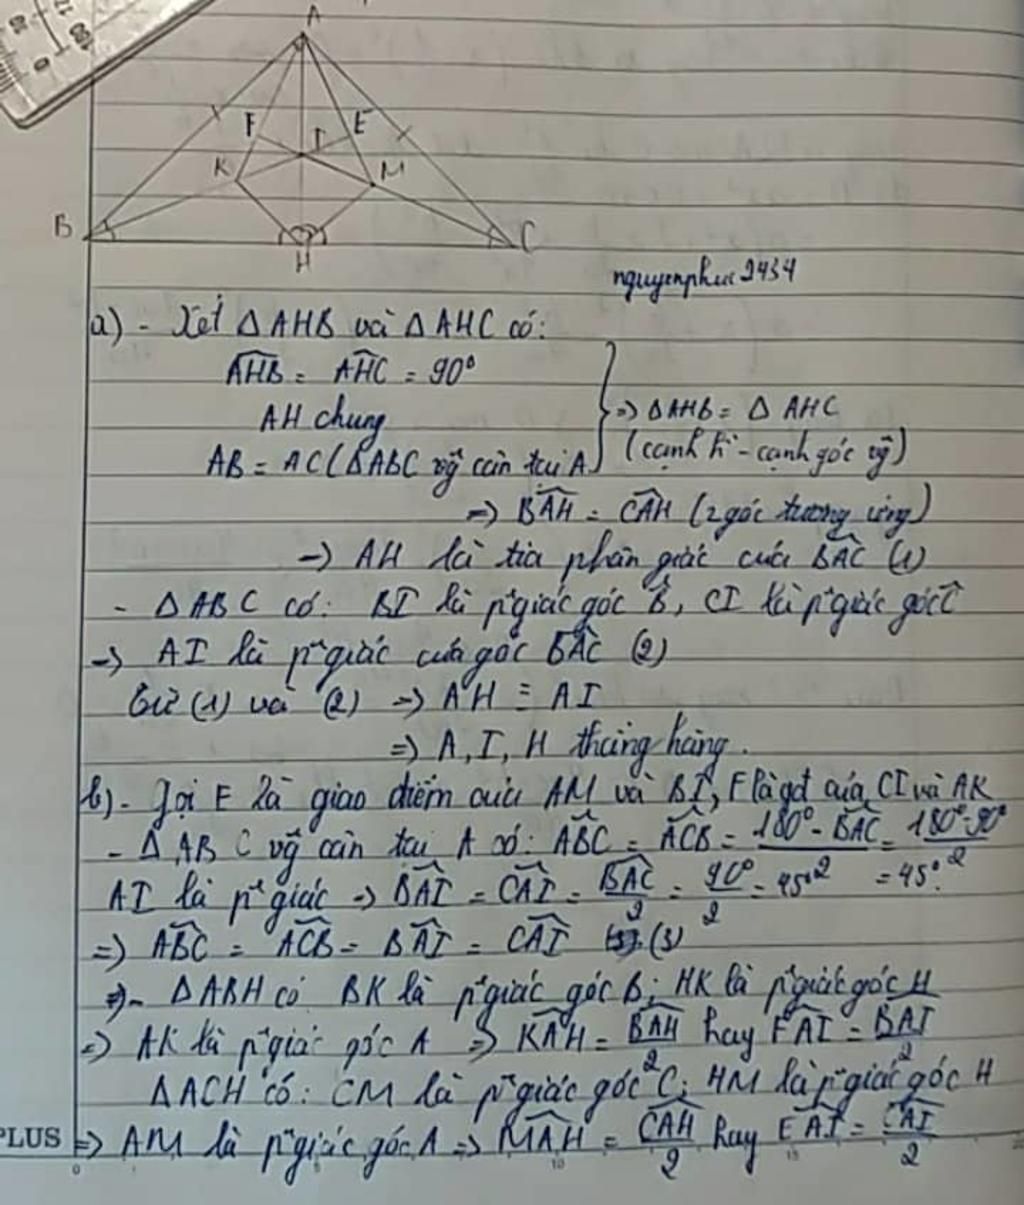 A
F I E
K M
B H C
nguyenphuc2434
a) - Xét △AHB và △AHC có:
AHB = AHC = 90°
AH chung
AB = AC (△ABC vg cân tại A)
⇒ △AHB = △AHC
(cạnh h - cạnh góc vg)
⇒ BAH = CAH (2 góc tương ứng)
⇒ AH là tia phân giác của BAC (1)
- △ABC có: BI là p giác góc B, CI là p giác góc C
⇒ AI là p giác của góc BAC (2)
Từ (1) và (2) ⇒ AH ≡ AI
⇒ A, I, H thẳng hàng.
b) - Gọi E là giao điểm của AM và BI, F là gđ của CI và AK
- △ABC vg cân tại A có: ABC = ACB = (180° - BAC)/2 = (180° - 90°)/2 = 45°.
AI là p giác ⇒ BAI = CAI = BAC/2 = 90°/2 = 45°
⇒ ABC = ACB = BAI = CAI (3)
- △ABH có BK là p giác góc B; HK là p giác góc H
⇒ AK là p giác góc A ⇒ KAH = BAH/2 hay FAI = BAI/2
△ACH có: CM là p giác góc C; HM là p giác góc H
⇒ AM là p giác góc A ⇒ MAH = CAH/2 hay EAI = CAI/2
PLUS